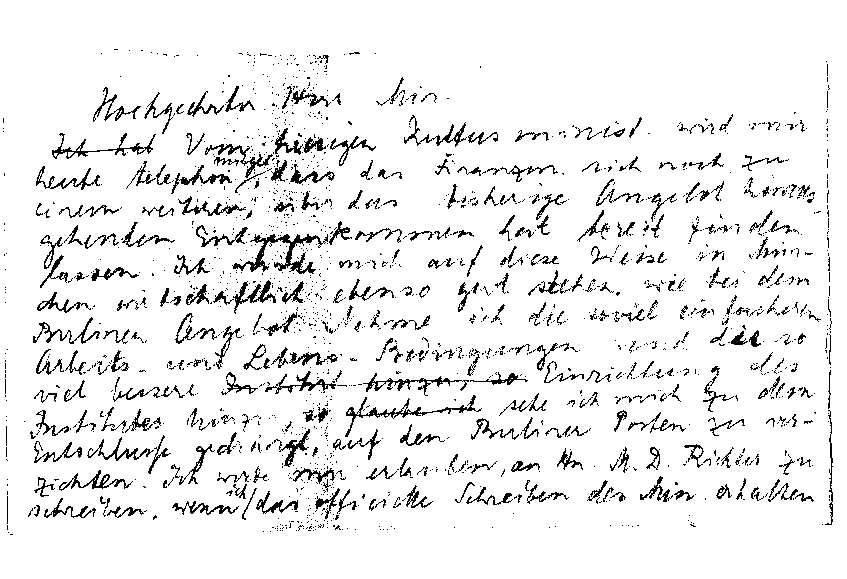 Hochgeehrter Herr Min.
Ich hab Vom hiesigen Kultusminist. wird mir
heute telephon, dass das Finanzm. sich noch zu
einem weiteren, über das bisherige Angebot hinaus-
gehenden Entgegenkommen hat bereit finden
lassen. Ich würde mich auf diese Weise in Mün-
chen wirtschaftlich ebenso gut stehen, wie bei dem
Berliner Angebot. Nehme ich die soviel einfacheren
Arbeits- und Lebens-Bedingungen und die so
viel bessere Institut hinzu, so Einrichtung des
Institutes hinzu, so glaube ich sehe ich mich zu dem
Entschlusse gedrängt, auf den Berliner Posten zu ver-
zichten. Ich werde mir erlauben, an Hn. M. D. Richter zu
schreiben, wenn ich das officielle Schreiben des Min. erhalten